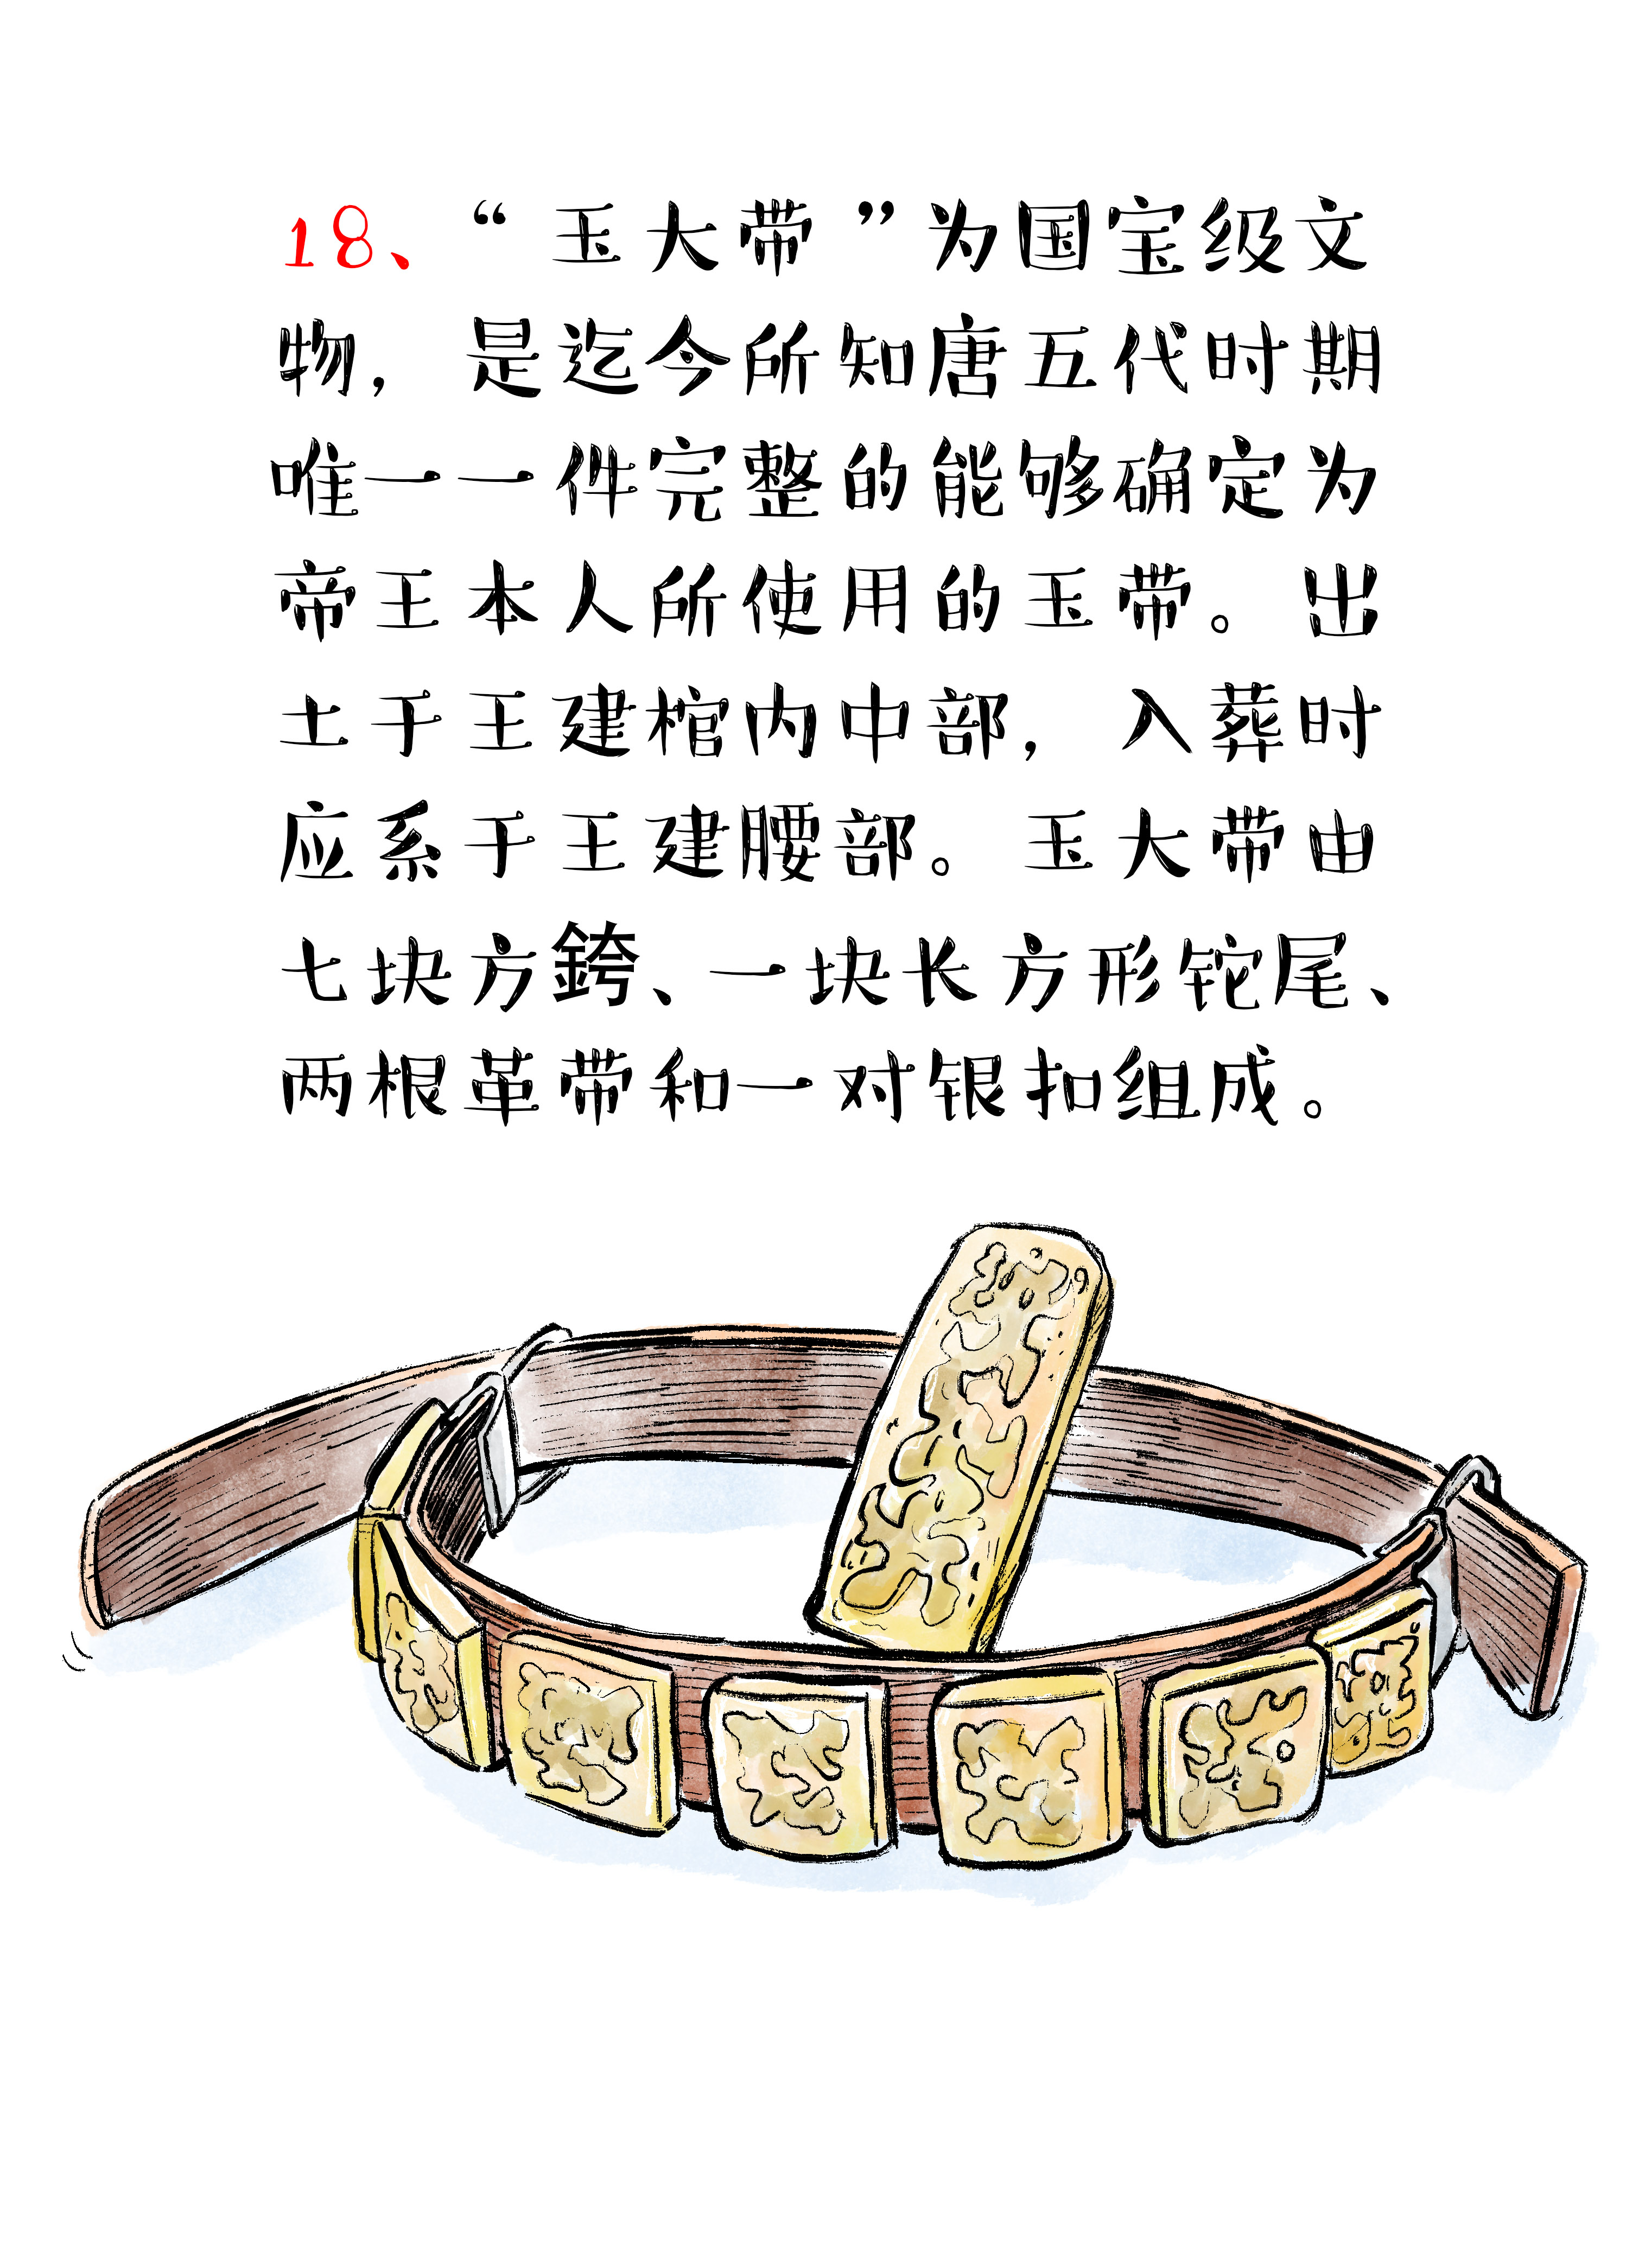 18、“玉大带”为国宝级文
物，是迄今所知唐五代时期
唯一一件完整的能够确定为
帝王本人所使用的玉带。出
土于王建棺内中部，入葬时
应系于王建腰部。玉大带由
七块方銙、一块长方形铊尾、
两根革带和一对银扣组成。